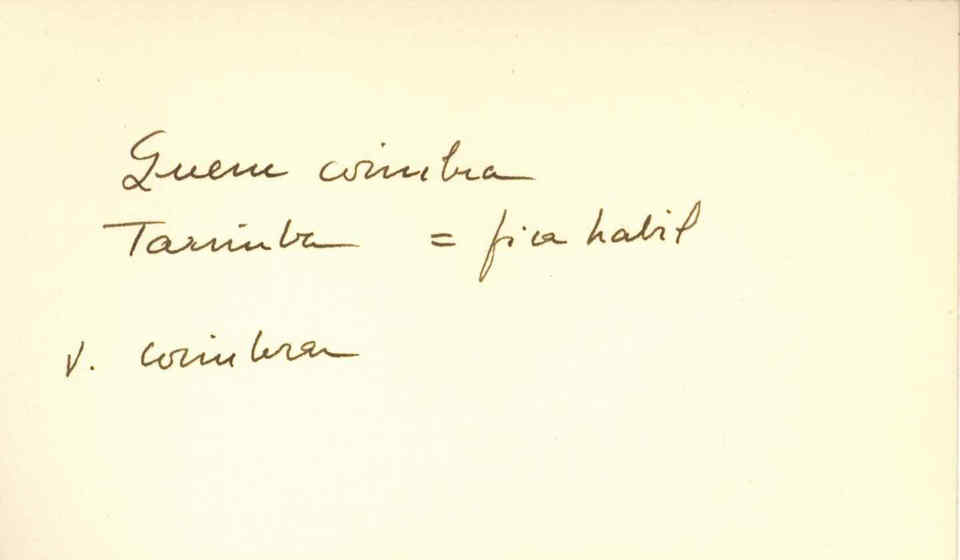 Quem coimbra
Tarimba = fica habil
v. coimbrar